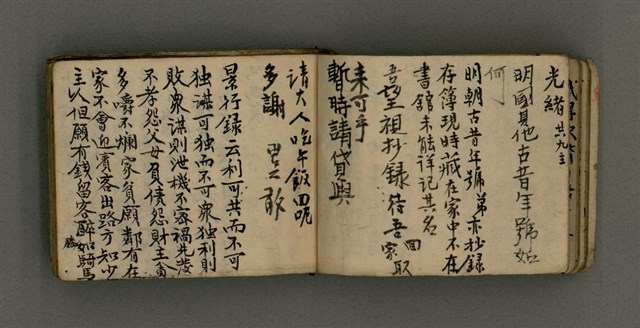 光緒廿九主
明國其他古昔年號如
何
明朝古昔年號弟亦抄錄
存簿現時藏在家中不在
書舘未能详記其名
吾望祖抄錄待吾回家取
来可乎
暫時請貸與
請大人吃午飯四呢
多謝 思不敢
景行録云利可共而不可
独谋可独而不可衆独利則
敗衆谋則泄機不容禍先發
不孝怨父母負債怨財主貪
多嚼不爛家貧願鄰有在
家不會迎賓客出路方知少
主人但願有錢留客醉勝如騎馬